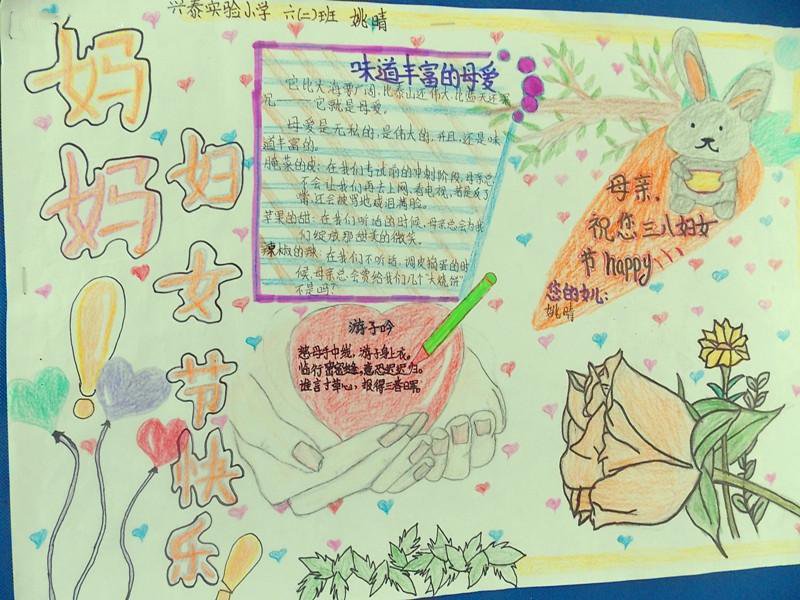 兴泰实验小学 六(二)班 姚晴
妈妈
妇女节快乐
味道丰富的母爱
它比大海要广阔,比泰山还伟大,比蓝天还
——它就是母爱。
母爱是无私的,是伟大的,并且,还是味
道丰富的。
腌菜的咸:在我们考试前的冲刺阶段,母亲总
不会让我们再去上网,看电视,若是反了
常,还会被骂地咸泪满脸。
苹果的甜:在我们听话的时候,母亲总会为我
们绽放那甜美的微笑。
辣椒的辣:在我们不听话,调皮捣蛋的时
候,母亲总会赏给我们几个“大烧饼”
不是吗?
母亲,
祝您三八妇女
节happy!!!
您的女儿:
姚晴
游子吟
慈母手中线,游子身上衣。
临行密密缝,意恐迟迟归。
谁言寸草心,报得三春晖。